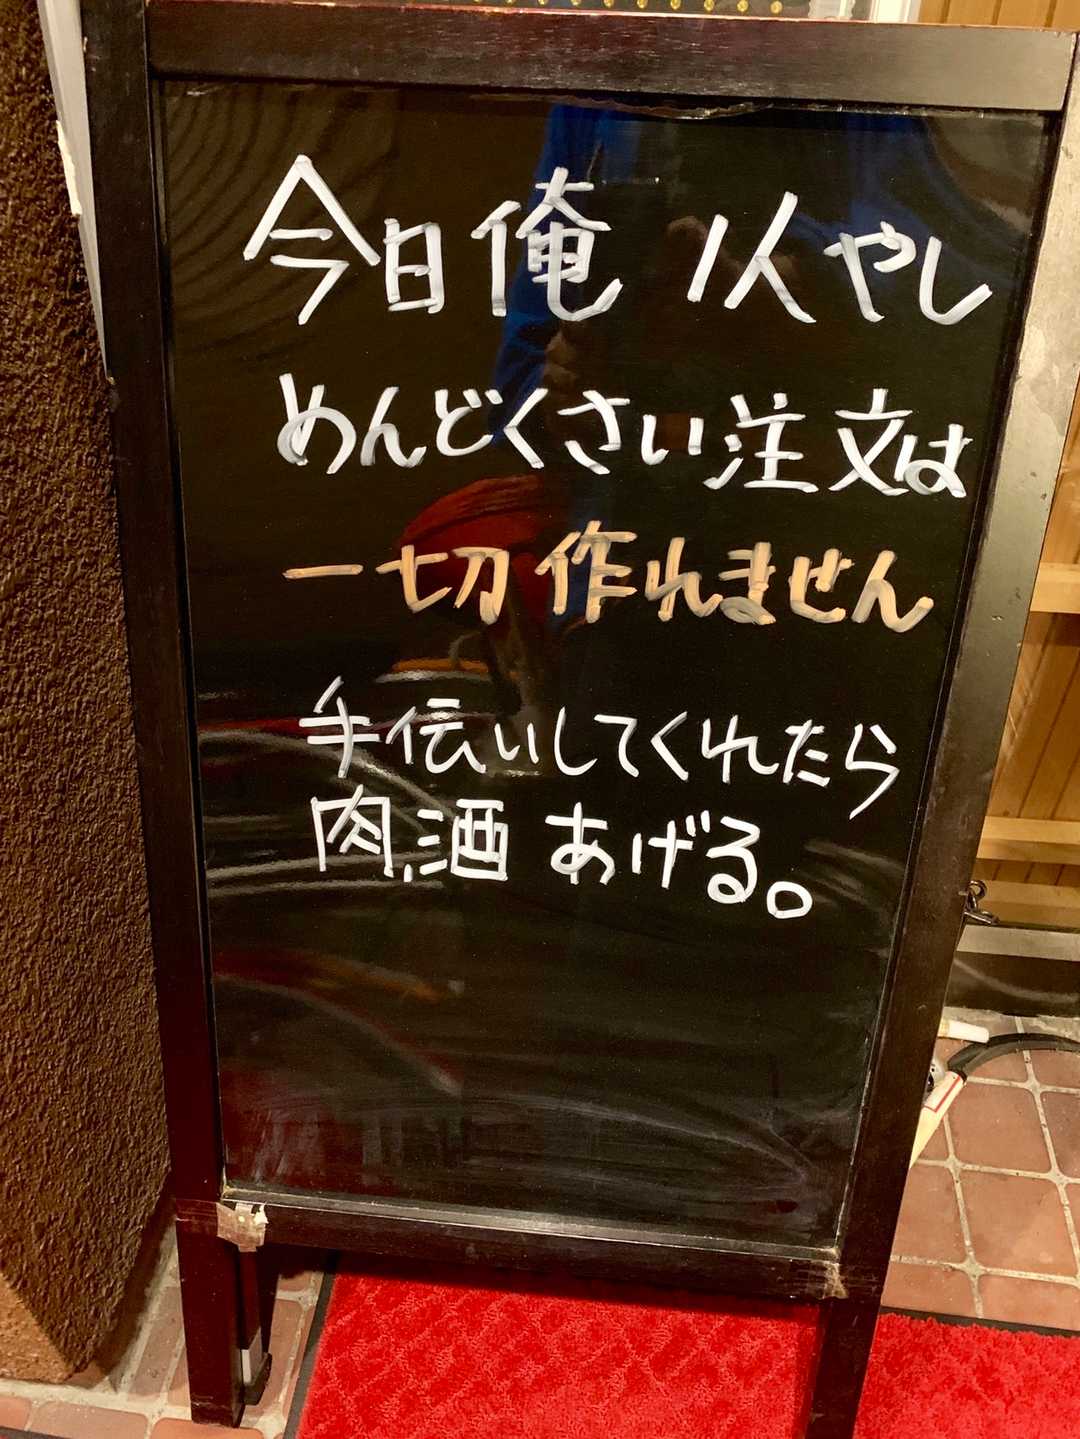 今日俺 1人やし
めんどくさい注文は
一切作れません
手伝いしてくれたら
肉、酒 あげる。